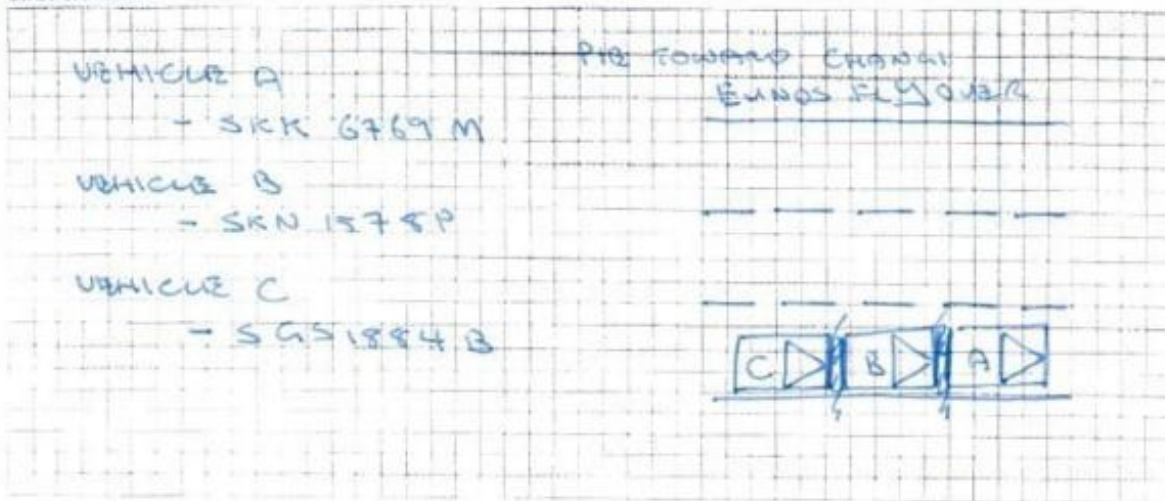 VEHICLE A
- SKK 6769 M
VEHICLE B
- SKN 1578P
VEHICLE C
- SGS1884 B
PIE TOWARD CHANGI
EUNOS FLYOVER
C B A